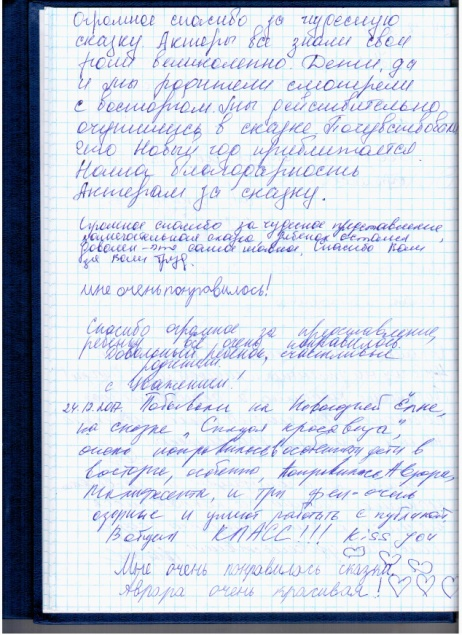 Огромное спасибо за чудесную
сказку. Актеры все знали свои
роли великолепно. Дети, да
и мы родители смотрели
с восторгом. Мы действительно
очутились в сказке. Почувствовали
что Новый год приближается.
Наша благодарность
Актерам за сказку.
Огромное спасибо за чудесное представление,
замечательная сказка, ребенок остался
доволен - это самое главное, спасибо Вам
за Ваш труд.
Мне очень понравилось!
Спасибо огромное за представление,
ребенку всё очень понравилось
Довольный ребенок, счастливые
родители.
с Уважением!
24.12.2017. Побывали на Новогодней Ёлке,
на сказке "Спящая красавица",
очень понравилось, дети в
восторге, особенно, понравилась Аврора,
Малифесента, и три феи - очень
озорные и умеют работать с публикой.
В общем КЛАСС!!! Kiss you
Мне очень понравилась сказка
Аврара очень красивая!